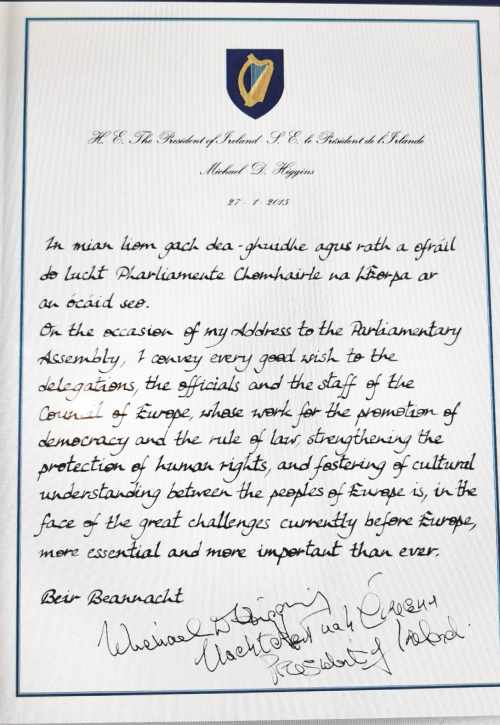 H. E. The President of Ireland S. E. le Président de l'Irlande
Michael D. Higgins
27 - 1 - 2015
Is mian liom gach dea-ghuidhe agus rath a ofráil
do lucht Pharliamente Chomhairle na hEorpa ar
an ócáid seo.
On the occasion of my Address to the Parliamentary
Assembly, I convey every good wish to the
delegations, the officials and the staff of the
Council of Europe, whose work for the promotion of
democracy and the rule of law, strengthening the
protection of human rights, and fostering of cultural
understanding between the peoples of Europe is, in the
face of the great challenges currently before Europe,
more essential and more important than ever.
Beir Beannacht
Michael D Higgins
Uachtarán na hÉireann
President of Ireland.